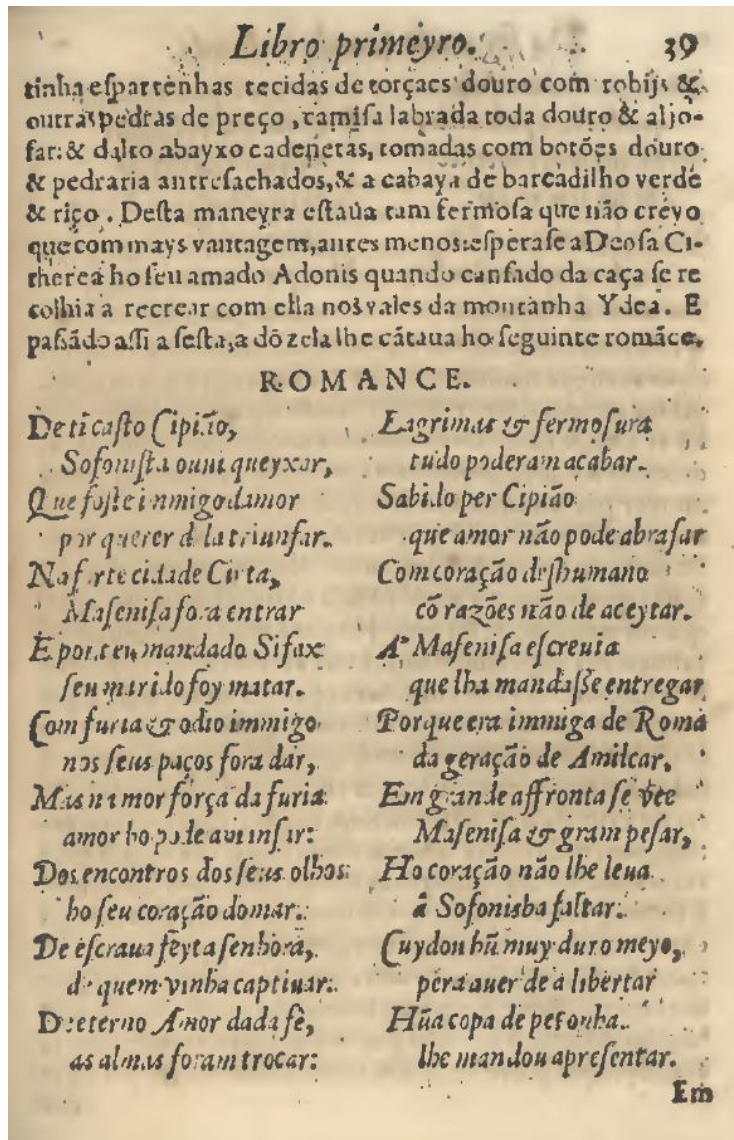 Libro primeyro. 39
tinha eſpartenhas tecidas de torçaes douro com robijs &
outras pedras de preço, camiſa labrada toda douro & aljo-
far: & dalto abayxo cadenetas, tomadas com botões douro
& pedraria antreſachados, & a cabaya de barcadilho verde
& riço. Deſta maneyra eſtaua tam fermoſa que não creyo
que com mays vantagem, antes menos: eſperaſe a Deoſa Ci-
therea ho ſeu amado Adonis quando canſado da caça ſe re
colhia a recrear com ella nos vales da montanha Ydea. E
paſsãdo aſſi a ſeſta, a dõzela lhe cãtaua ho ſeguinte romãce.
ROMANCE.
De ti caſto Cipião,
Sofoniſta ouui queyxar,
Que foſte inmigo damor
por querer d la triunfar.
Na forte cidade Cirta,
Maſeniſa fora entrar
E por teu mandado Sifax
ſeu marido foy matar.
Com furia & odio immigo
nos ſeus paços fora dar,
Mas na mor força da furia
amor ho pode
Dos encontros dos ſeus olhos
ho ſeu coração domar.
De eſcraua feyta ſenhora,
de quem vinha captiuar.
De eterno Amor dada fê,
as almas foram trocar:
Lagrimas & fermoſura
tudo poderam acabar.
Sabido per Cipião
que amor não pode abraſar
Com coração deſhumano
cõ razões não de aceytar.
A Maſeniſa eſcreuia
que lha mandaſſe entregar
Porque era immiga de Roma
da geração de Amilcar.
Em grande affronta ſe vee
Maſeniſa & gram peſar,
Ho coração não lhe leua
â Sofonisba faltar.
Cuydou hũ muy duro meyo,
pera auer de a libertar
Hũa copa de peçonha
lhe mandou apreſentar.
Em